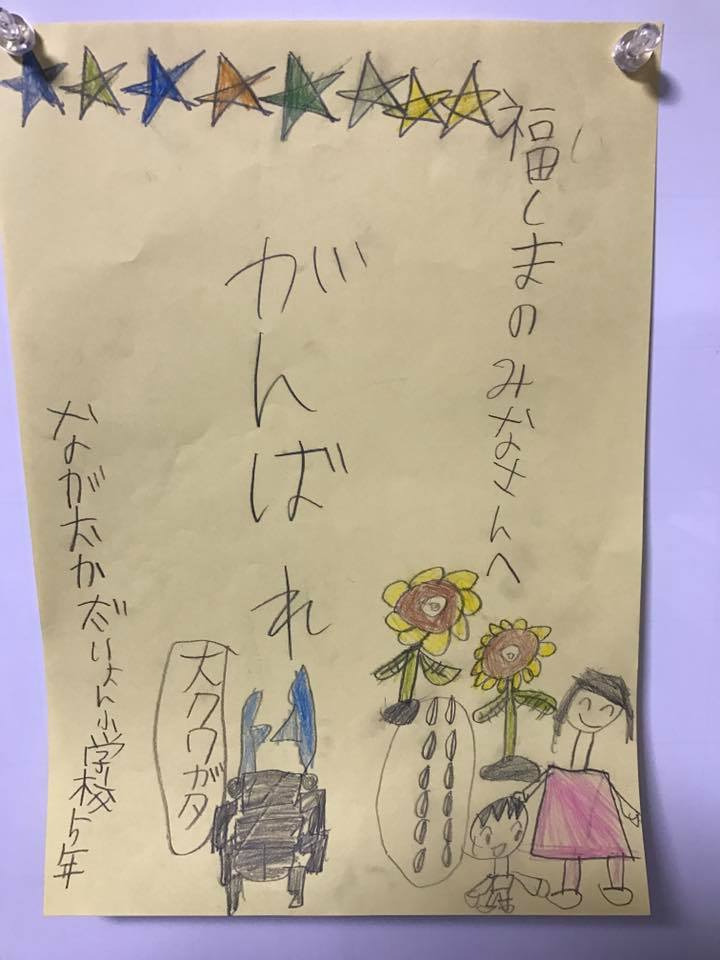 福しまのみなさんへ
がんばれ
大クワガタ
ながおかだいよん小学校5年